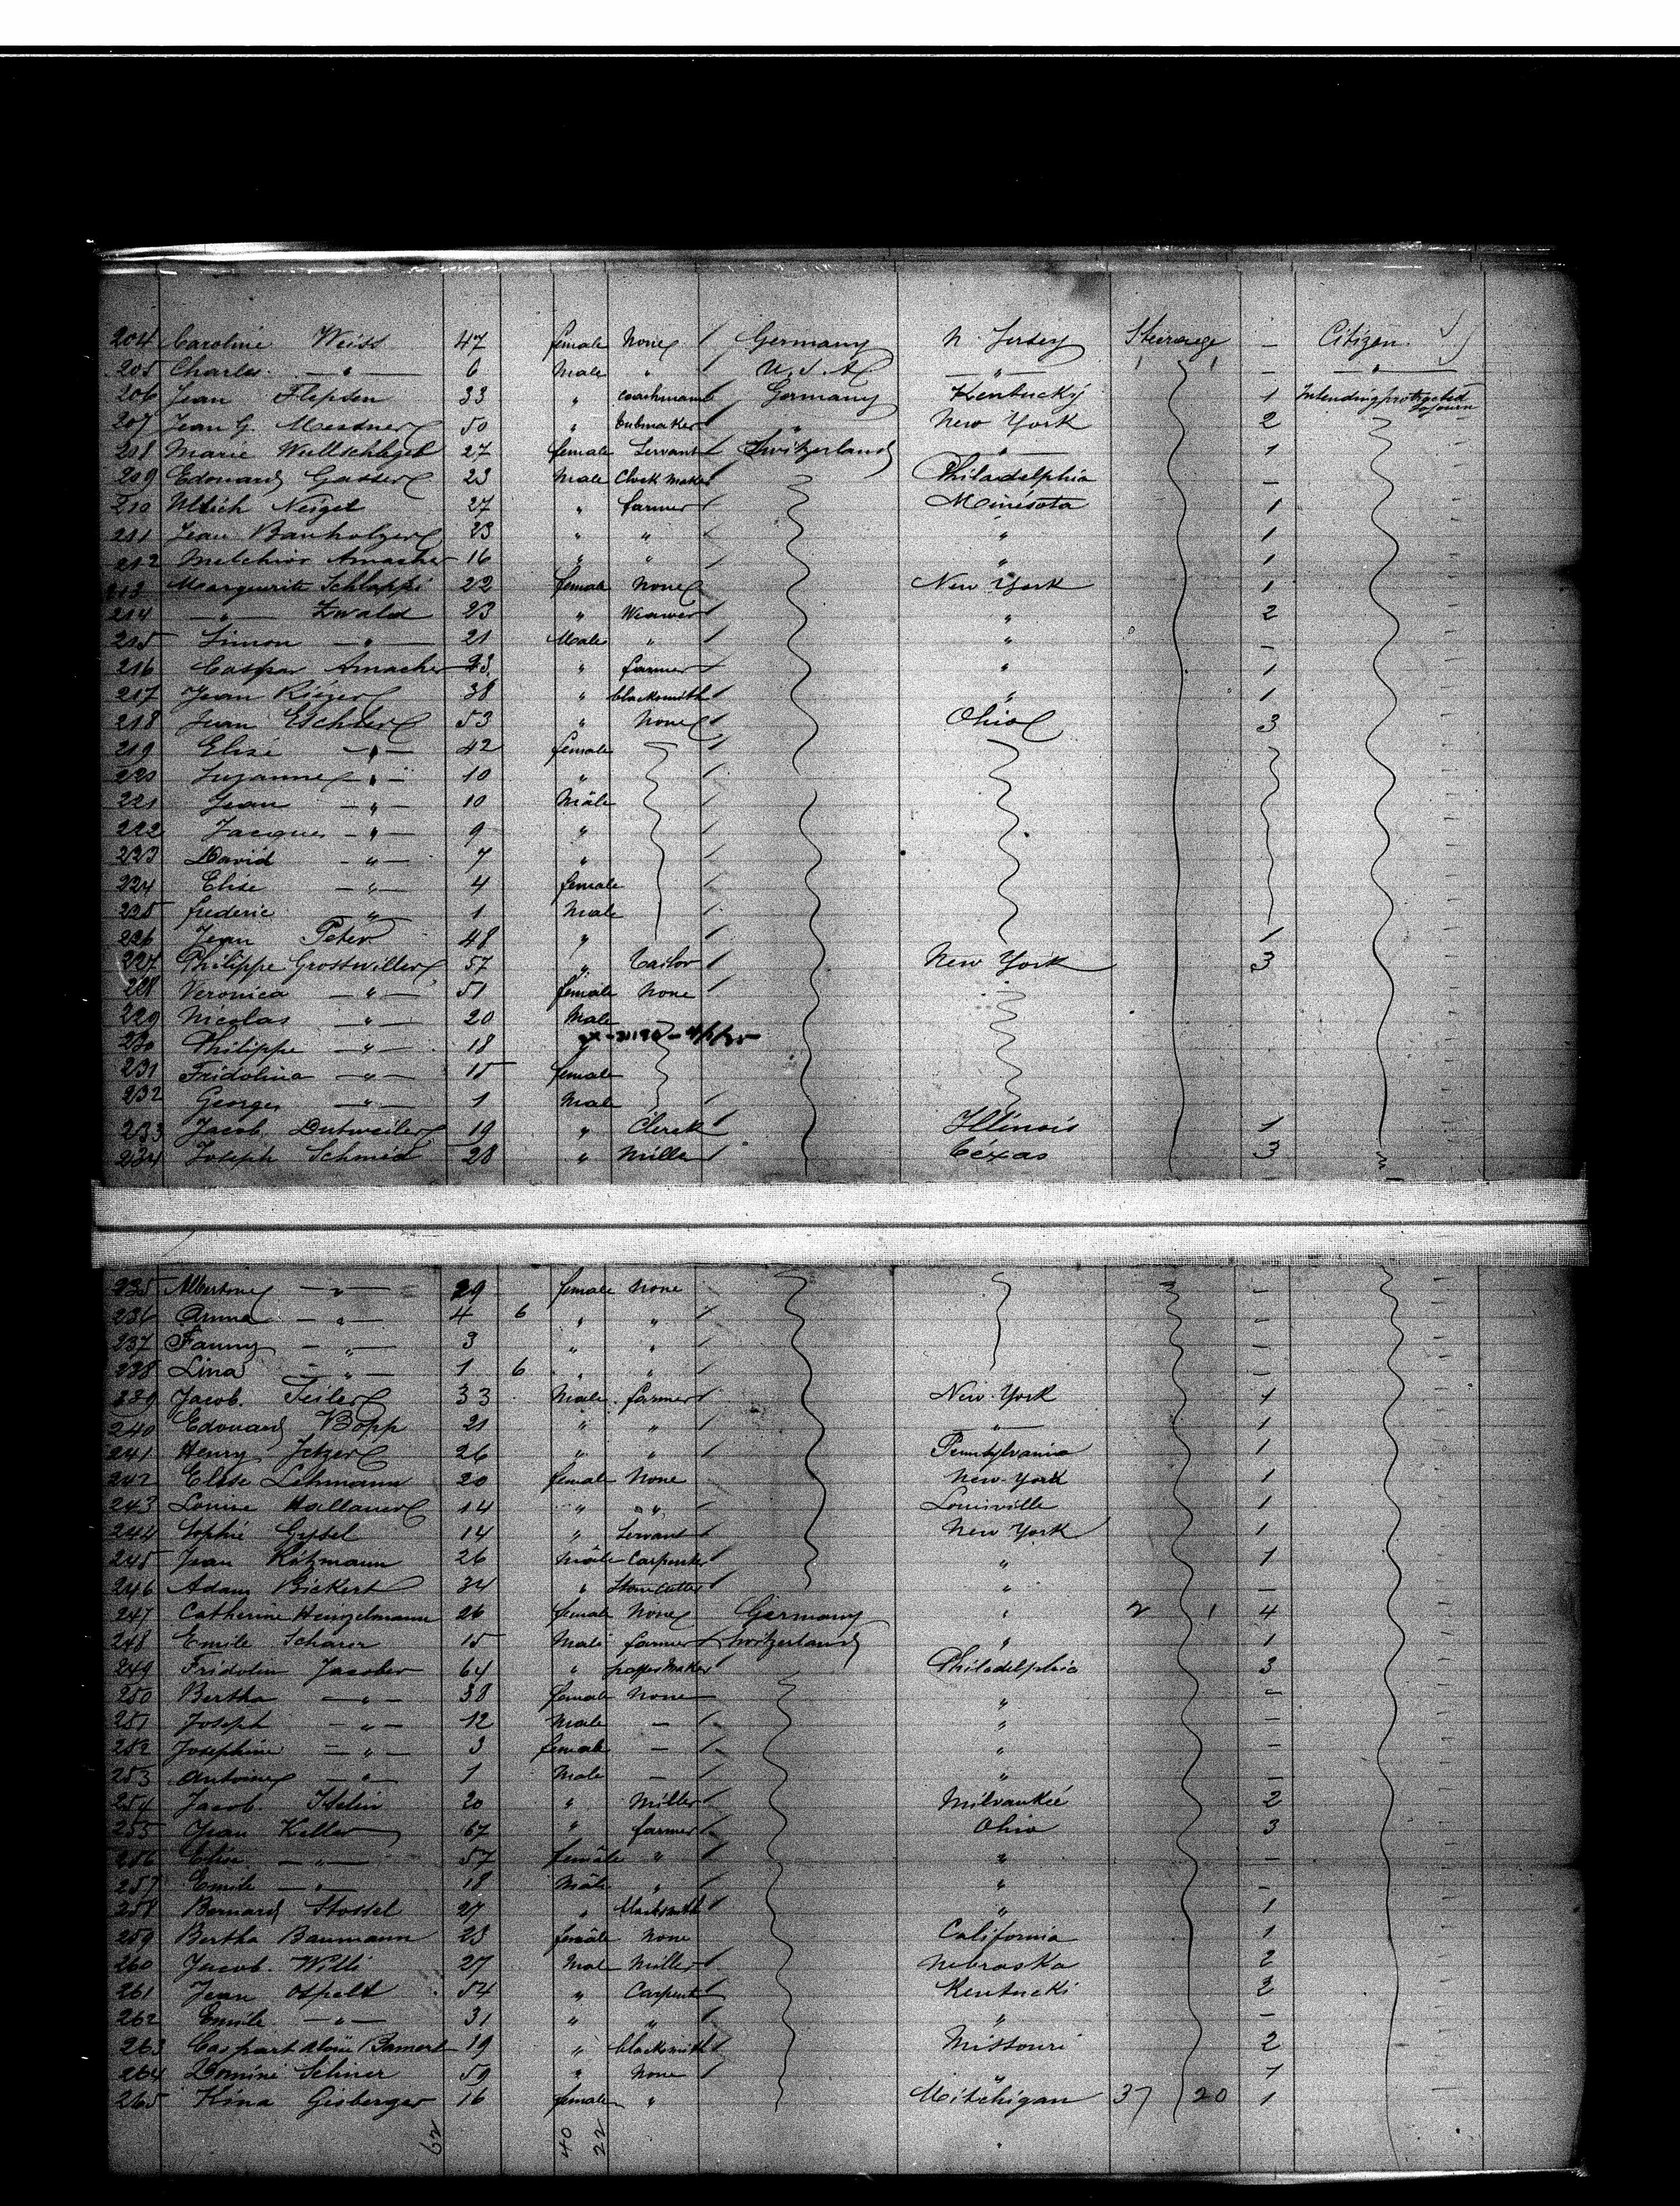 204 Caroline Weiss 47 female None Germany N. Jersey Steerage — Citizen
205 Charles — " — 6 Male " U. S. A — " — — — " —
206 Jean 33 " coachman Germany Kentucky 1 Intending protracted sojourn
207 Jean G. 50 " " New York 2
208 Marie Wullschlegel 27 female Servant Switzerland — " — 1
209 Edouard Gasser 23 Male Clock Maker Philadelphia —
210 Ulrich 27 " farmer Minésota 1
211 Jean Banholzer 23 " " " 1
212 Melchior Amacher 16 " " " 1
213 Marguerite Schlappi 22 female None New York 1
214 — " — Zwald 23 " Weawer " 2
215 Simon — " — 21 Male " " —
216 Caspar Amacher " farmer " 1
217 Jean Rieger 38 " blacksmith " 1
218 Jean 53 " None Ohio 3
219 Elise — " — 42 female
220 Suzanne — " — 10 "
221 Jean — " — 10 Male
222 Jacques — " — 9 "
223 David — " — 7 "
224 Elise — " — 4 female
225 frederic " 1 Male
226 Jean Peter 48 " 1
227 Philippe Grosswiller 57 " Tailor New York 3
228 Veronica — " — 51 female None
229 Nicolas — " — 20 Male
230 Philippe — " — 18
231 Fridolina — " — 15 female
232 Georges — " — 1 Male
233 Jacob Dutweiler 19 " Clerck Illinois 1
234 Joseph Schmid 28 " Miller Téxas 3
235 Albertone — " — 29 female None —
236 Anna — " — 4 6 " " —
237 Fanny — " — 3 " "
238 Lina — " — 1 6 " " —
239 Jacob Teiler 33 Male farmer New-York 1
240 Edouard Bopp 21 " " — " — 1
241 Henry Jetzer 26 " " Pennsylvania 1
242 Elise Lehmann 20 female None New-York 1
243 Louise Hallauer 14 " " Louisville 1
244 Sophie Gysel 14 " Servant New York 1
245 Jean Ritzmann 26 Male Carpenter " 1
246 Adam Bickert 34 " Stone Cutter " —
247 Catherine Heinzelmann 26 female None Germany " 2 1 4
248 Emile Scharer 15 Male farmer Switzerland " 1
249 Fridolin Jacober 64 " paper Maker Philadelphia 3
250 Bertha — " — 38 female None " —
251 Joseph — " — 12 Male — " —
252 Josephine — " — 3 female — " —
253 Antoine — " — 1 Male — " —
254 Jacob Iselin 20 " Miller Milvaukée 2
255 Jean Keller 67 " farmer Ohio 3
256 Elise — " — 57 female " " —
257 Emile — " — 18 Male " " —
258 Bernard Stossel 27 " blacksmith " 1
259 Bertha Baumann 23 female None California 1
260 Jacob Willi 27 Male Miller Nebraska 2
261 Jean Ospelt 54 " Carpent Kentucki 2
262 Emile — " — 31 " " " —
263 Caspar Bamert 19 " blacksmith Missouri 2
264 59 " None " 1
265 Gisberger 16 female " Mitchigan 37 20 1
62 40 22